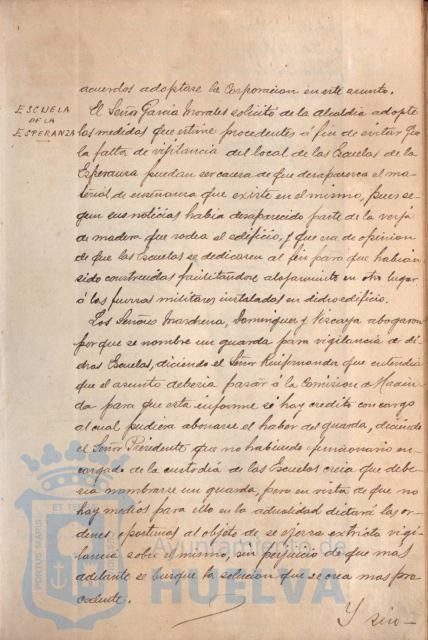 acuerdos adoptase la Corporacion en este asunto.
ESCUELA
DE LA
ESPERANZA
El Señor Garcia Morales solicitó de la Alcaldia adopte
las medidas que estime procedentes á fin de evitar que
la falta de vigilancia del local de las Escuelas de la
Esperanza puedan ser causa de que desaparezca el ma-
terial de enseñanza que existe en el mismo, pues se-
gun sus noticias habia desaparecido parte de la verja
de madera que rodea el edificio, y que era de opinion
de que las Escuelas se dedicaran al fin para que habian
sido construidas facilitandose alojamiento en otro lugar
á las fuerzas militares instaladas en dicho edificio.
Los Señores Marchena, Dominguez y Vizcaya abogaron
por que se nombre un guarda para vigilancia de di-
chas Escuelas, diciendo el Señor que entendia
que el asunto deberia pasar á la Comision de Hacien-
da para que esta informe si hay credito con cargo
al cual pudiera abonarse el haber del guarda, diciendo
el Señor Presidente que no habiendo funcionario en-
cargado de la custodia de las Escuelas creia que debe-
ria nombrarse un guarda, pero en vista de que no
hay medios para ello en la actualidad dictará las or-
denes oportunas al objeto de se ejerza extricta vigi-
lancia sobre el mismo, sin perjuicio de que mas
adelante se busque la solucion que se crea mas pro-
cedente.
Y sien-
PORTUS MARIS
ET TE
Ayuntamiento de
HUELVA